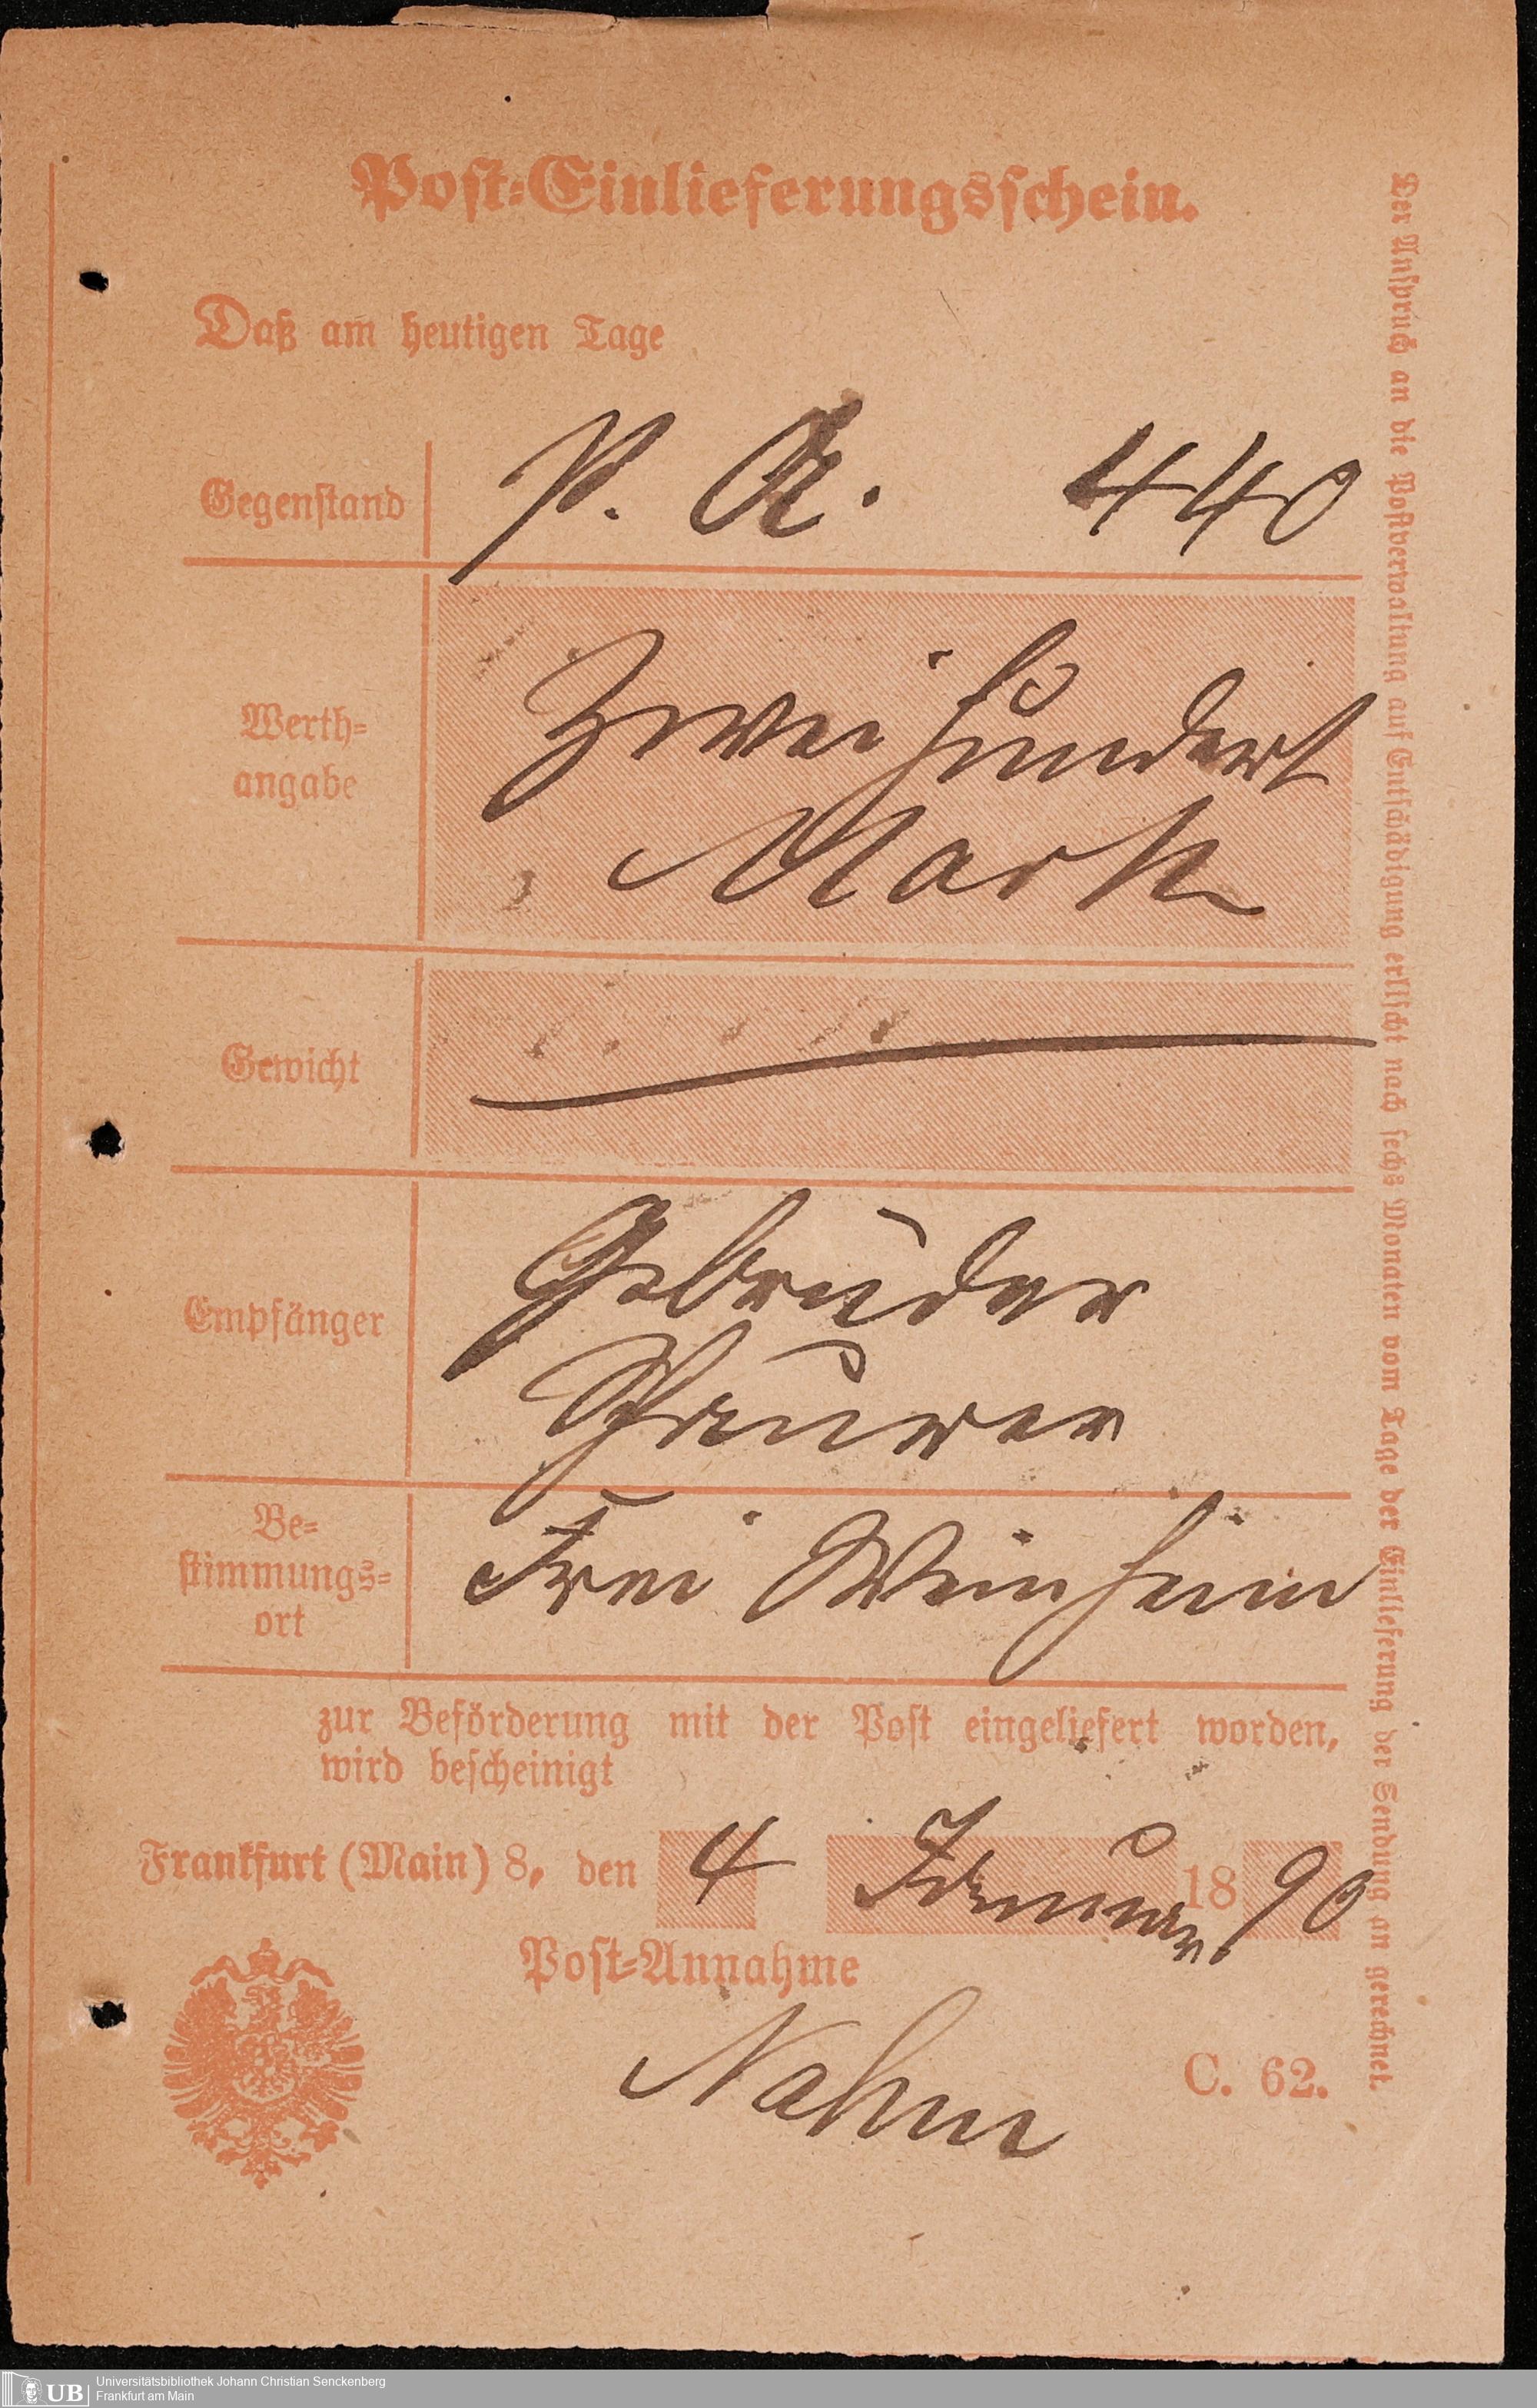 Post-Einlieferungsschein.
Daß am heutigen Tage
Gegenstand P. A. 440
Werth-
angabe
Zweihundert
Mark
Gewicht
Empfänger
Gebrüder
Be-
stimmungs-
ort
Frei Weinheim
zur Beförderung mit der Post eingeliefert worden,
wird bescheinigt
Frankfurt (Main) 8, den 4 Februar 1890
Post-Annahme
C. 62.
Der Anspruch an die Postverwaltung auf Entschädigung erlischt nach sechs Monaten vom Tage der Einlieferung der Sendung an gerechnet.
UB Universitätsbibliothek Johann Christian Senckenberg
Frankfurt am Main